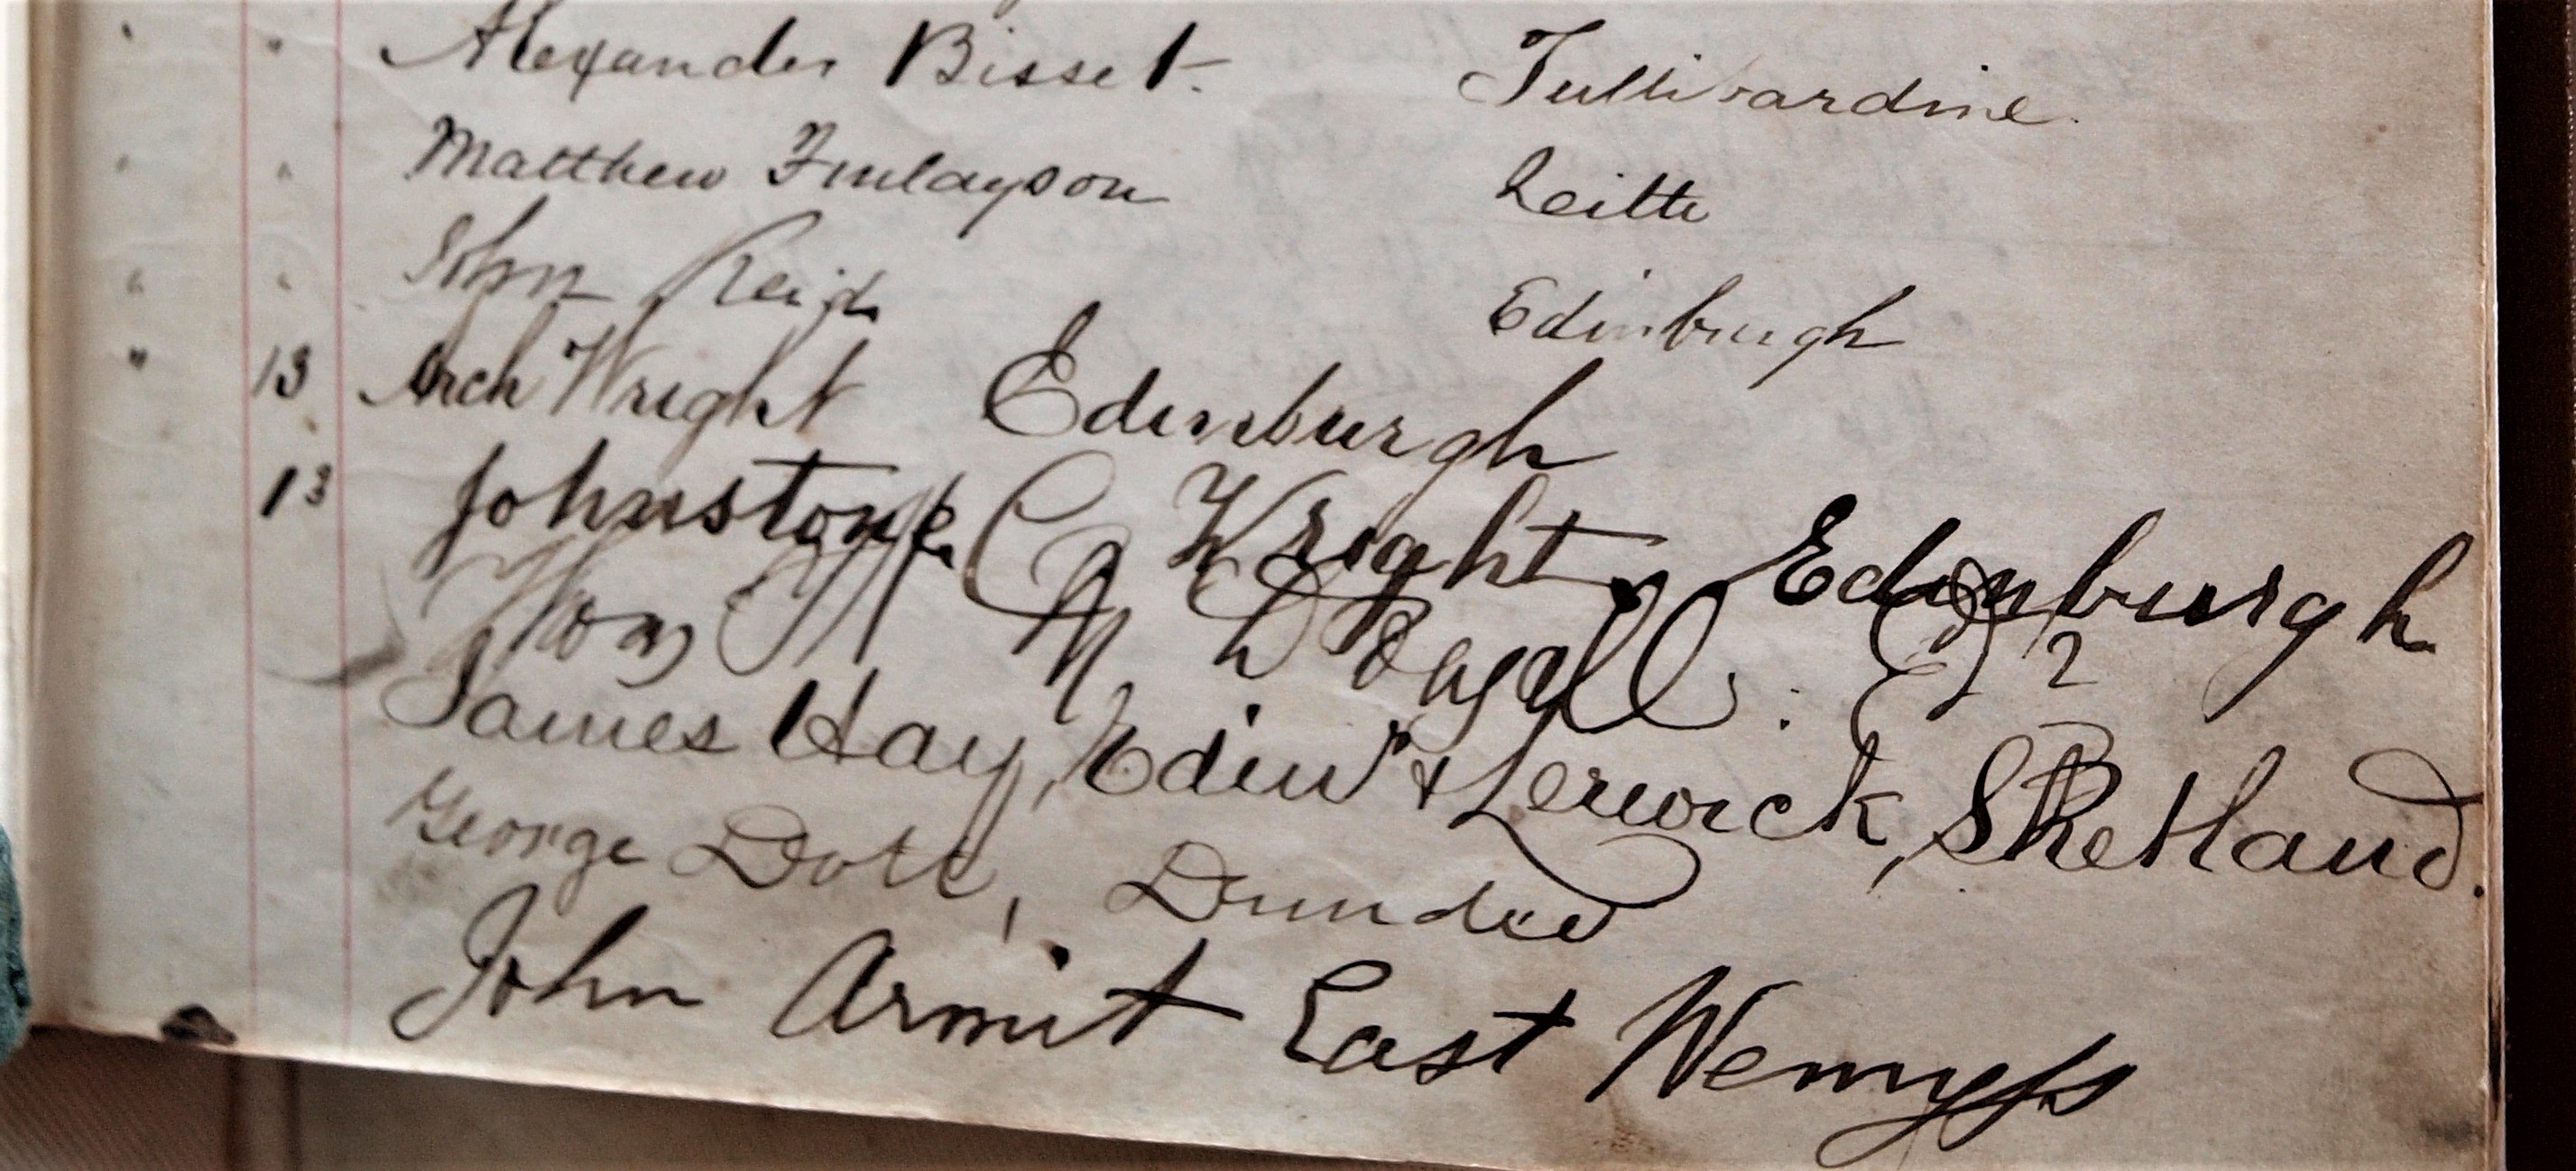 " " Alexander Bisset. Tullibardine.
" " Matthew Finlayson Leith
" " John Reid Edinburgh
" 13 Arch Wright Edinburgh
13 Johnstone C Wright, Edinburgh
Thos
James Hay, Edinr & Lerwick, Shetland.
George Dott, Dundee
John Armit East Wemyss